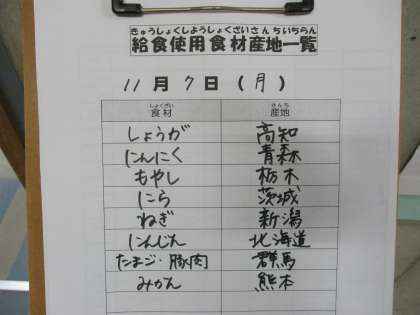 きゅうしょくしようしょくざいさんちいちらん
給食使用食材産地一覧
11月7日(月)
しょくざい さんち
食材 産地
しょうが 高知
にんにく 青森
もやし 栃木
にら 茨城
ねぎ 新潟
にんじん 北海道
たまご・豚肉 群馬
みかん 熊本